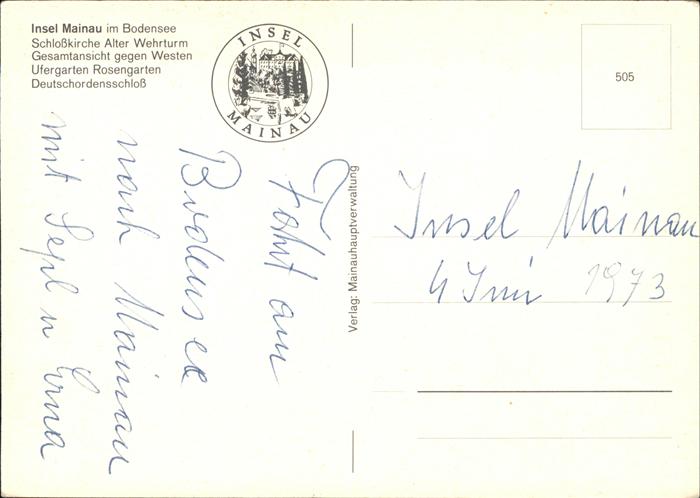 Insel Mainau im Bodensee
Schloßkirche Alter Wehrturm
Gesamtansicht gegen Westen
Ufergarten Rosengarten
Deutschordensschloß
INSEL
MAINAU
505
Fahrt am
Bodensee
nach Mainau
mit Sepl u Erna
Verlag: Mainauhauptverwaltung
Insel Mainau
4 Juni 1973